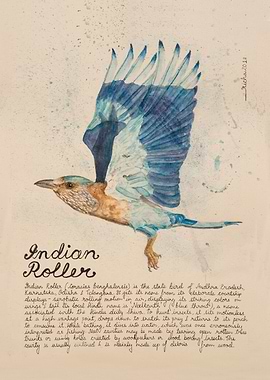 Indian
Roller
Indian Roller (Coracias benghalensis) is the state bird of Andhra Pradesh,
Karnataka, Odisha & Telangana. It gets its name from its elaborate courtship
displays - aerobatic rolling motion in air, displaying its striking colors on
wings & tail. Its local Hindi name is "Neelkanth" ("blue throat"), a name
associated with the Hindu deity Shiva. To hunt insects, it sits motionless
at a high vantage point, drops down to pursue its prey & returns to its perch
to consume it. While bathing, it dives into water, which was once erroneously
interpreted as fishing. Nest cavities may be made by tearing open rotten tree
trunks or using holes created by woodpeckers or wood boring insects. The
cavity is usually unlined & is mainly made up of debris from wood.